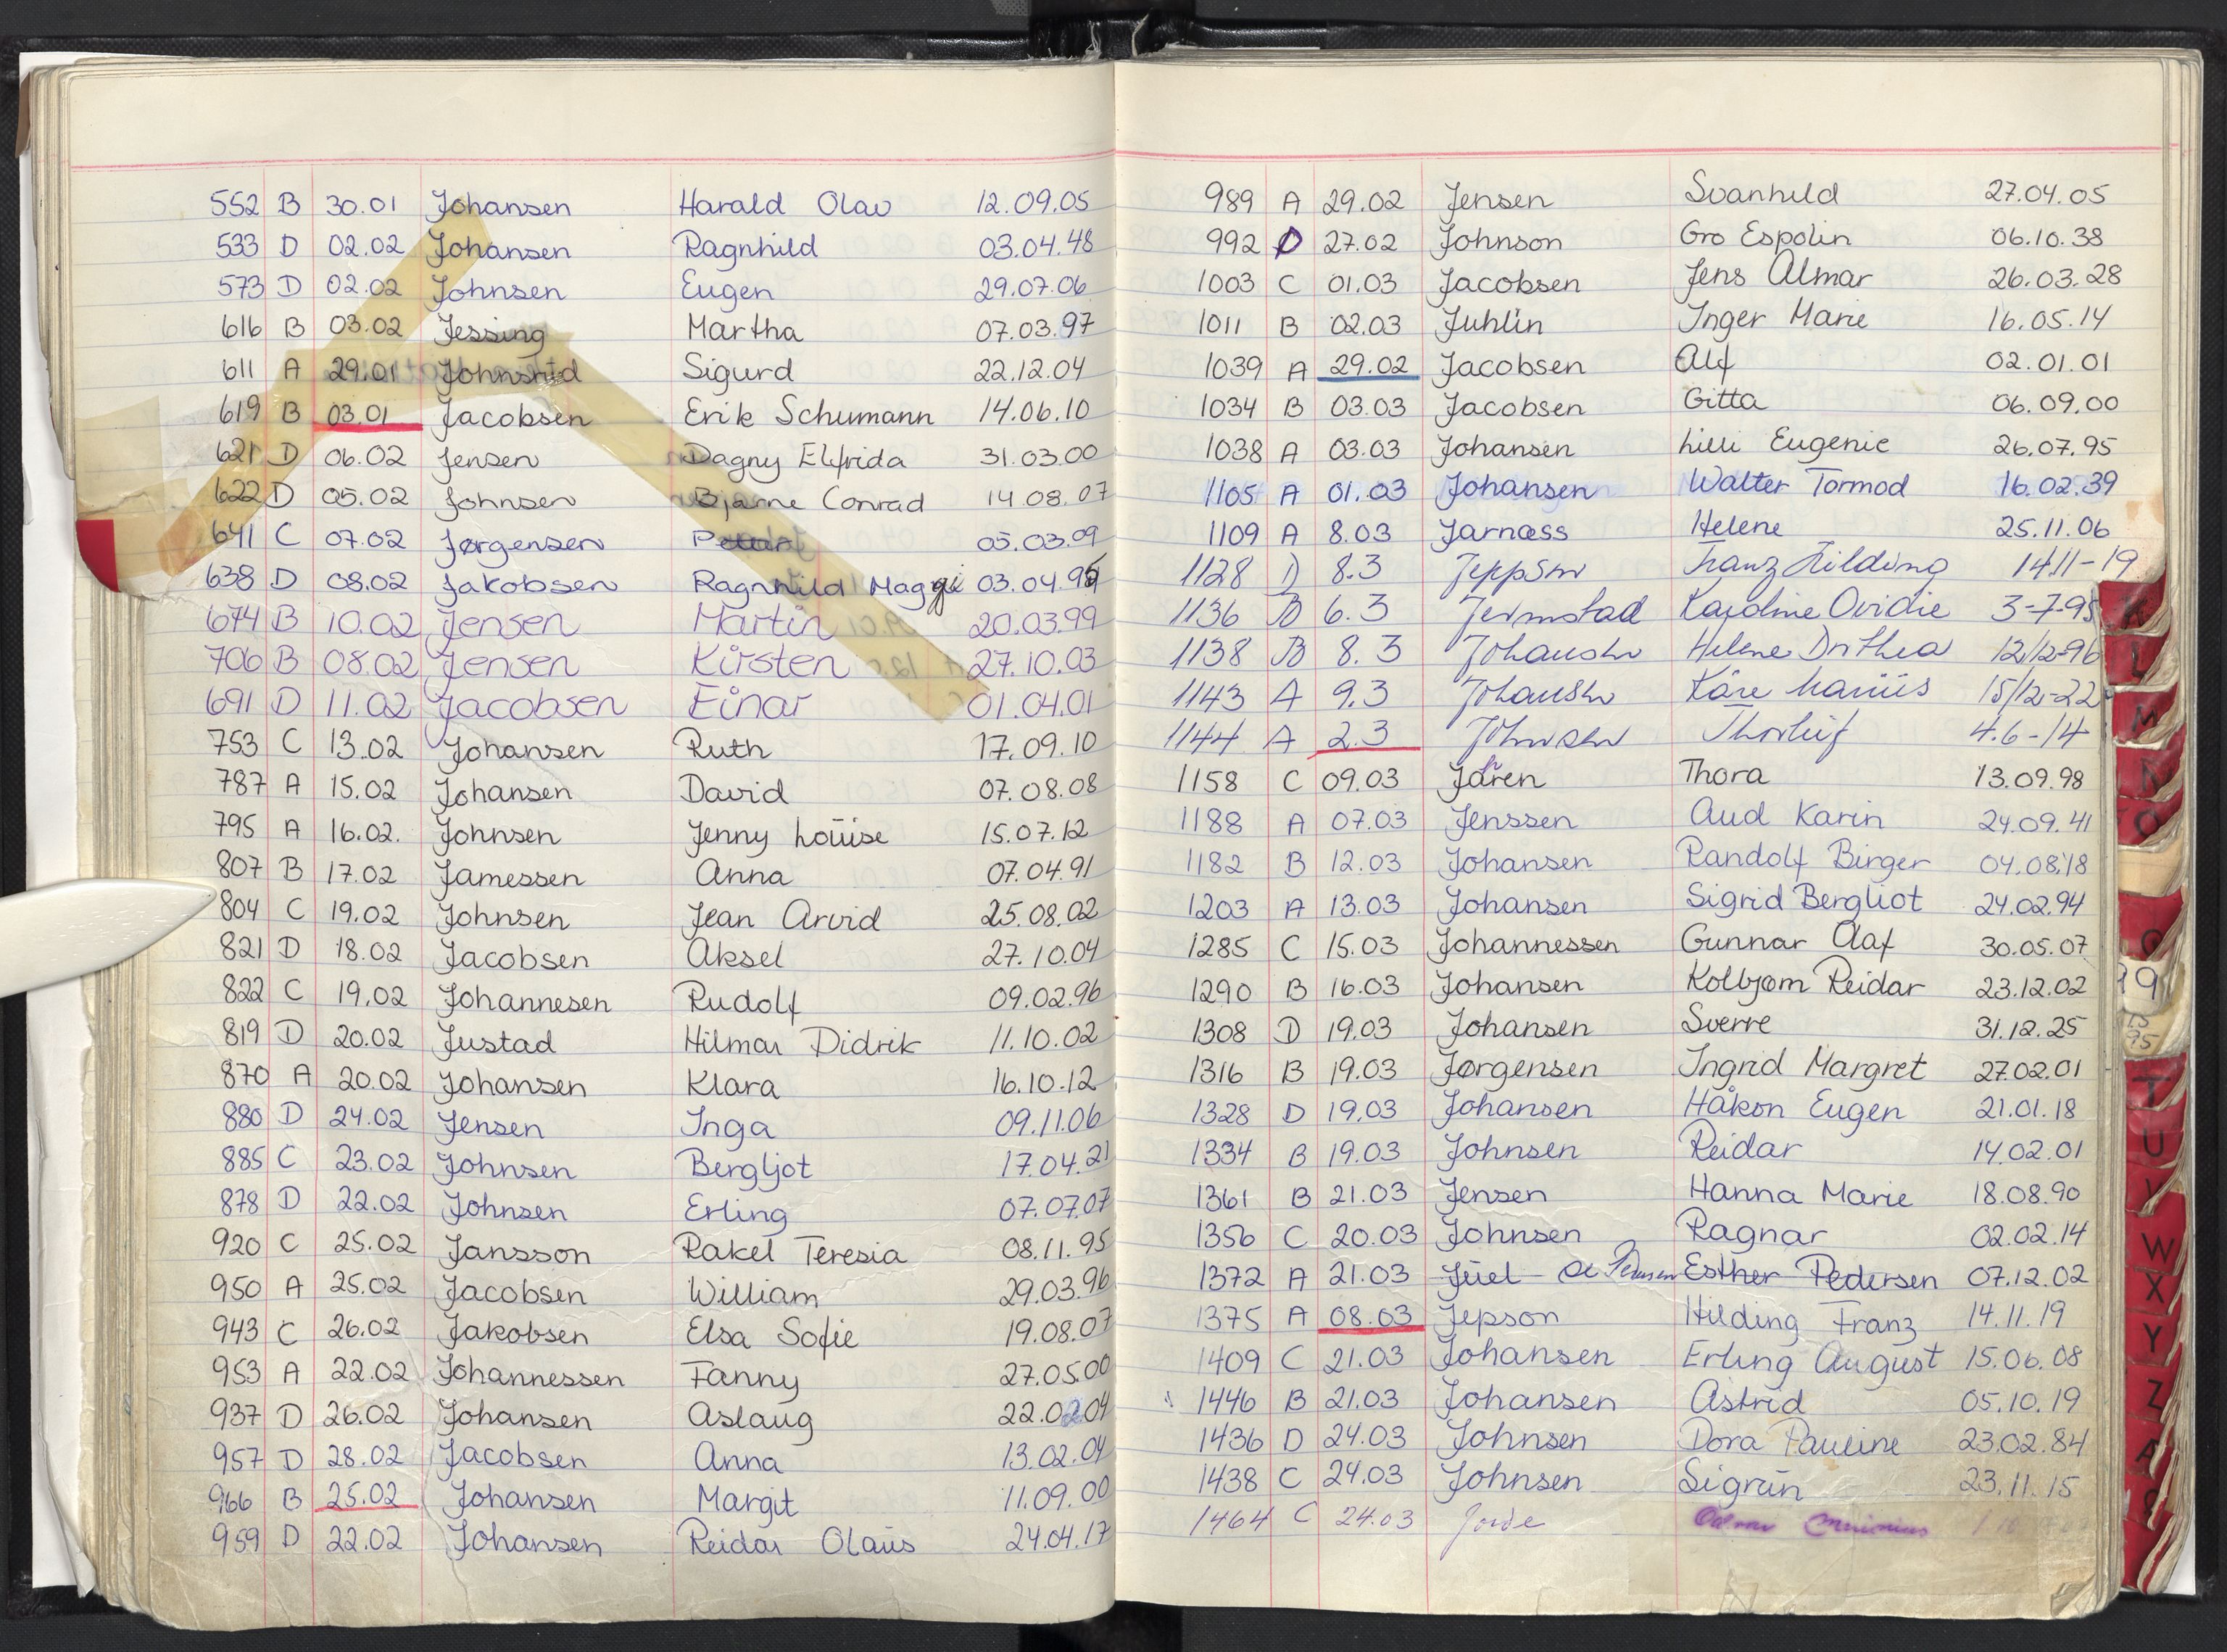 552 B 30.01 Johansen Harald Olav 12.09.05
533 D 02.02 Johansen Ragnhild 03.04.48
573 D 02.02 Johnsen Eugen 29.07.06
616 B 03.02 Jessing Martha 07.03.97
611 A 29.01 Johnsrud Sigurd 22.12.04
619 B 03.01 Jacobsen Erik Schumann 14.06.10
621 D 06.02 Jensen Dagny Elfrida 31.03.00
622 D 05.02 Johnsen Bjarne Conrad 14.08.07
641 C 07.02 Jørgensen 05.03.09
638 D 08.02 Jakobsen Ragnhild Maggi 03.04.95
674 B 10.02 Jensen Martin 20.03.99
706 B 08.02 Jensen Kirsten 27.10.03
691 D 11.02 Jacobsen Einar 01.04.01
753 C 13.02 Johansen Ruth 17.09.10
787 A 15.02 Johansen David 07.08.08
795 A 16.02. Johnsen Jenny Louise 15.07.12
807 B 17.02 Jamessen Anna 07.04.91
804 C 19.02 Johnsen Jean Arvid 25.08.02
821 D 18.02 Jacobsen Aksel 27.10.04
822 C 19.02 Johannesen Rudolf 09.02.96
819 D 20.02 Justad Hilmar Didrik 11.10.02
870 A 20.02 Johansen Klara 16.10.12
880 D 24.02 Jensen Inga 09.11.06
885 C 23.02 Johnsen Bergljot 17.04.21
878 D 22.02 Johnsen Erling 07.07.07
920 C 25.02 Jansson Rakel Teresia 08.11.95
950 A 25.02 Jacobsen William 29.03.96
943 C 26.02 Jakobsen Elsa Sofie 19.08.07
953 A 22.02 Johannessen Fanny 27.05.00
937 D 26.02 Johansen Aslaug 22.02.04
957 D 28.02 Jacobsen Anna 13.02.04
966 B 25.02 Johansen Margit 11.09.00
959 D 22.02 Johansen Reidar Olaus 24.04.17
989 A 29.02 Jensen Svanhild 27.04.05
992 D 27.02 Johnson Gro Espolin 06.10.38
1003 C 01.03 Jacobsen Jens Almar 26.03.28
1011 B 02.03 Juhlin Inger Marie 16.05.14
1039 A 29.02 Jacobsen Alf 02.01.01
1034 B 03.03 Jacobsen Gitta 06.09.00
1038 A 03.03 Johansen Lilli Eugenie 26.07.95
1105 A 01.03 Johansen Walter Tormod 16.02.39
1109 A 8.03 Jarnæss Helene 25.11.06
1128 D 8.3 Jeppson Franz Hilding 14.11-19
1136 B 6.3 Jermstad Karoline Ovidie 3-7-95
1138 B 8.3 Johansen Helene Dorthea 12/12-96
1143 A 9.3 Johansen Kåre Marius 15/12-22
1144 A 2.3 Johnsen Thorleif 4.6-14
1158 C 09.03 Jåren Thora 13.09.98
1188 A 07.03 Jenssen Aud Karin 24.09.41
1182 B 12.03 Johansen Randolf Birger 04.08.18
1203 A 13.03 Johansen Sigrid Bergliot 24.02.94
1285 C 15.03 Johannessen Gunnar Olaf 30.05.07
1290 B 16.03 Johansen Kolbjørn Reidar 23.12.02
1308 D 19.03 Johansen Sverre 31.12.25
1316 B 19.03 Jørgensen Ingrid Margret 27.02.01
1328 D 19.03 Johansen Håkon Eugen 21.01.18
1334 B 19.03 Johnsen Reidar 14.02.01
1361 B 21.03 Jensen Hanna Marie 18.08.90
1356 C 20.03 Johnsen Ragnar 02.02.14
1372 A 21.03 Juel Esther Pedersen 07.12.02
1375 A 08.03 Jepson Hilding Franz 14.11.19
1409 C 21.03 Johansen Erling August 15.06.08
1446 B 21.03 Johansen Astrid 05.10.19
1436 D 24.03 Johnsen Dora Pauline 23.02.84
1438 C 24.03 Johnsen Sigrun 23.11.15
1464 C 24.03 Jorde
L
M
N
O
T
U
V
W
X
Y
Z